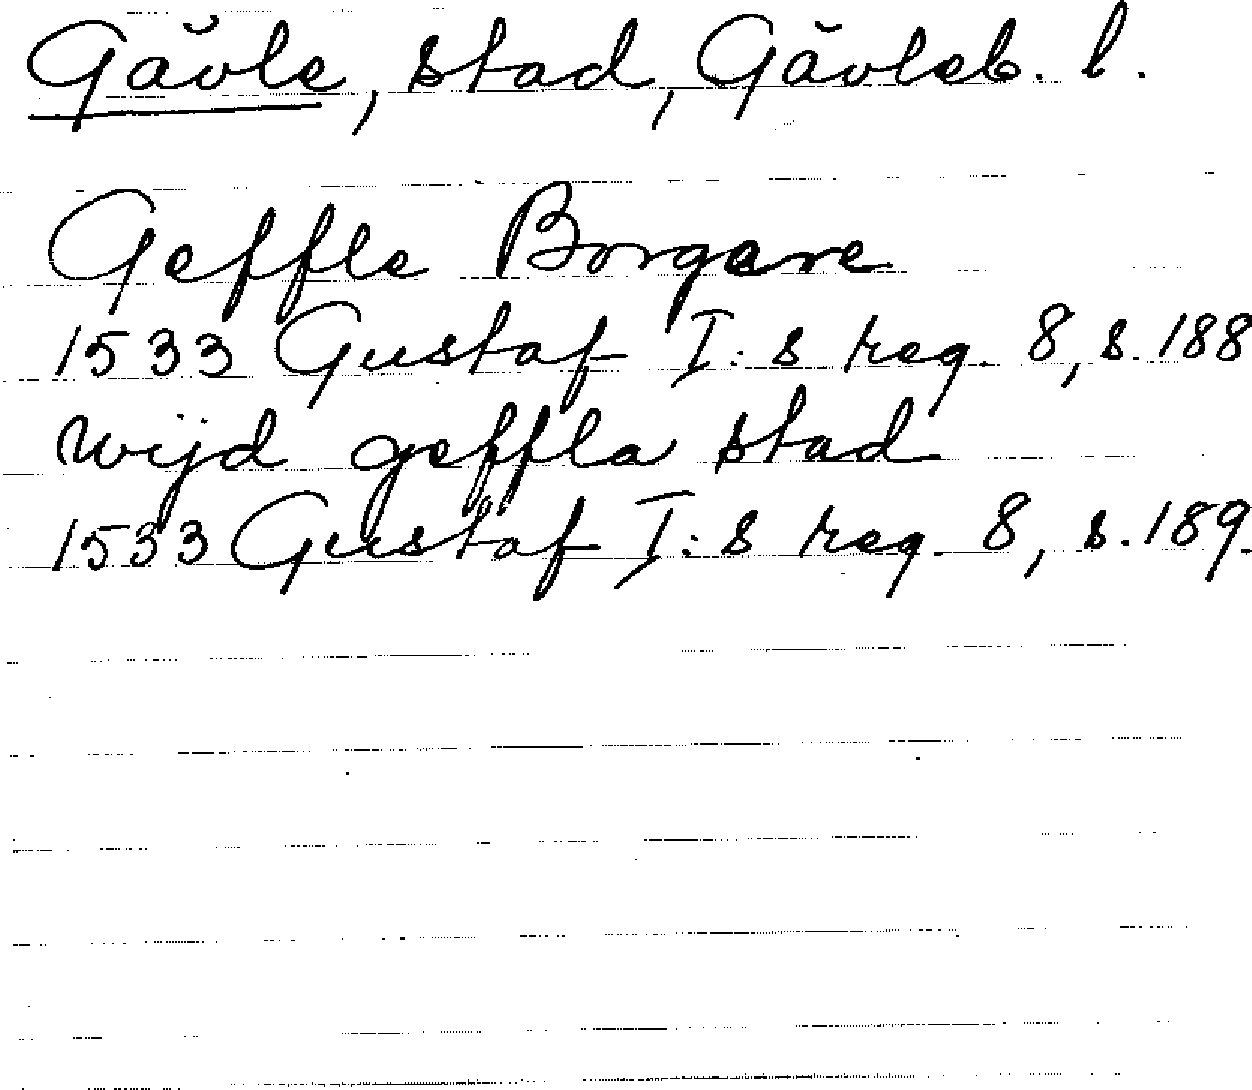 Gävle, stad, Gävleb. l.
Geffle Borgare
1533 Gustaf I:s reg. 8, s. 188
wijd geffla stad
1533 Gustaf I:s reg. 8, s. 189.